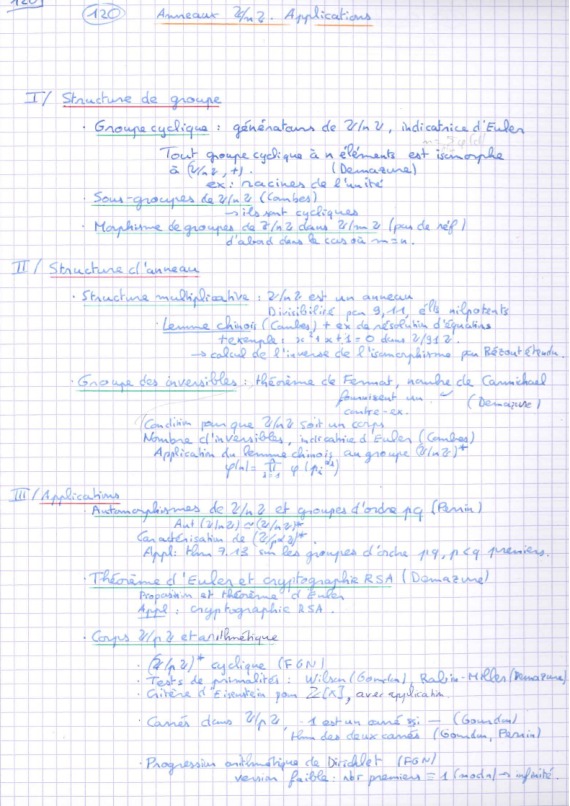 120
120 Anneaux Z/nZ. Applications
I/ Structure de groupe
· Groupe cyclique : générateurs de Z/nZ, indicatrice d'Euler
Tout groupe cyclique à n éléments est isomorphe
à (Z/nZ, +). (Demazure)
ex: racines de l'unité
· Sous-groupes de Z/nZ (Combes)
→ ils sont cycliques
· Morphisme de groupes de Z/nZ dans Z/mZ (pas de réf)
d'abord dans le cas où m=n.
II/ Structure d'anneau
· Structure multiplicative : Z/nZ est un anneau
Divisibilité par 9, 11, élts nilpotents
· Lemme chinois (Combes) + ex de résolution d'équations
+ exemple: x²+x+1=0 dans Z/91Z.
→ calcul de l'inverse de l'isomorphisme par Bézout étendu.
· Groupe des inversibles : théorème de Fermat, nombre de Carmichael
fournissent un
contre-ex. (Demazure)
Condition pour que Z/nZ soit un corps
Nombre d'inversibles, indicatrice d'Euler (Combes)
Application du lemme chinois au groupe (Z/nZ)*
φ(n) = ∏ φ(pᵢ^αⁱ)
III/ Applications
· Automorphismes de Z/nZ et groupes d'ordre pq (Perrin)
Aut (Z/nZ) ≃ (Z/nZ)*
Caractérisation de (Z/pZ)*.
Appl: thm 7.13 sur les groupes d'ordre pq, p<q premiers.
· Théorème d'Euler et cryptographie RSA (Demazure)
Proposition et théorème d'Euler
Appl : cryptographie RSA.
· Corps Z/pZ et arithmétique
· (Z/pZ)* cyclique (FGN)
· Tests de primalités : Wilson (Gourdon), Rabin-Miller (Demazure)
· Critère d'Eisenstein pour Z[X], avec application.
· Carrés dans Z/pZ, -1 est un carré ssi — (Gourdon)
thm des deux carrés (Gourdon, Perrin)
· Progression arithmétique de Dirichlet (FGN)
version faible: nbr premiers ≡ 1 (mod n) → infinité.